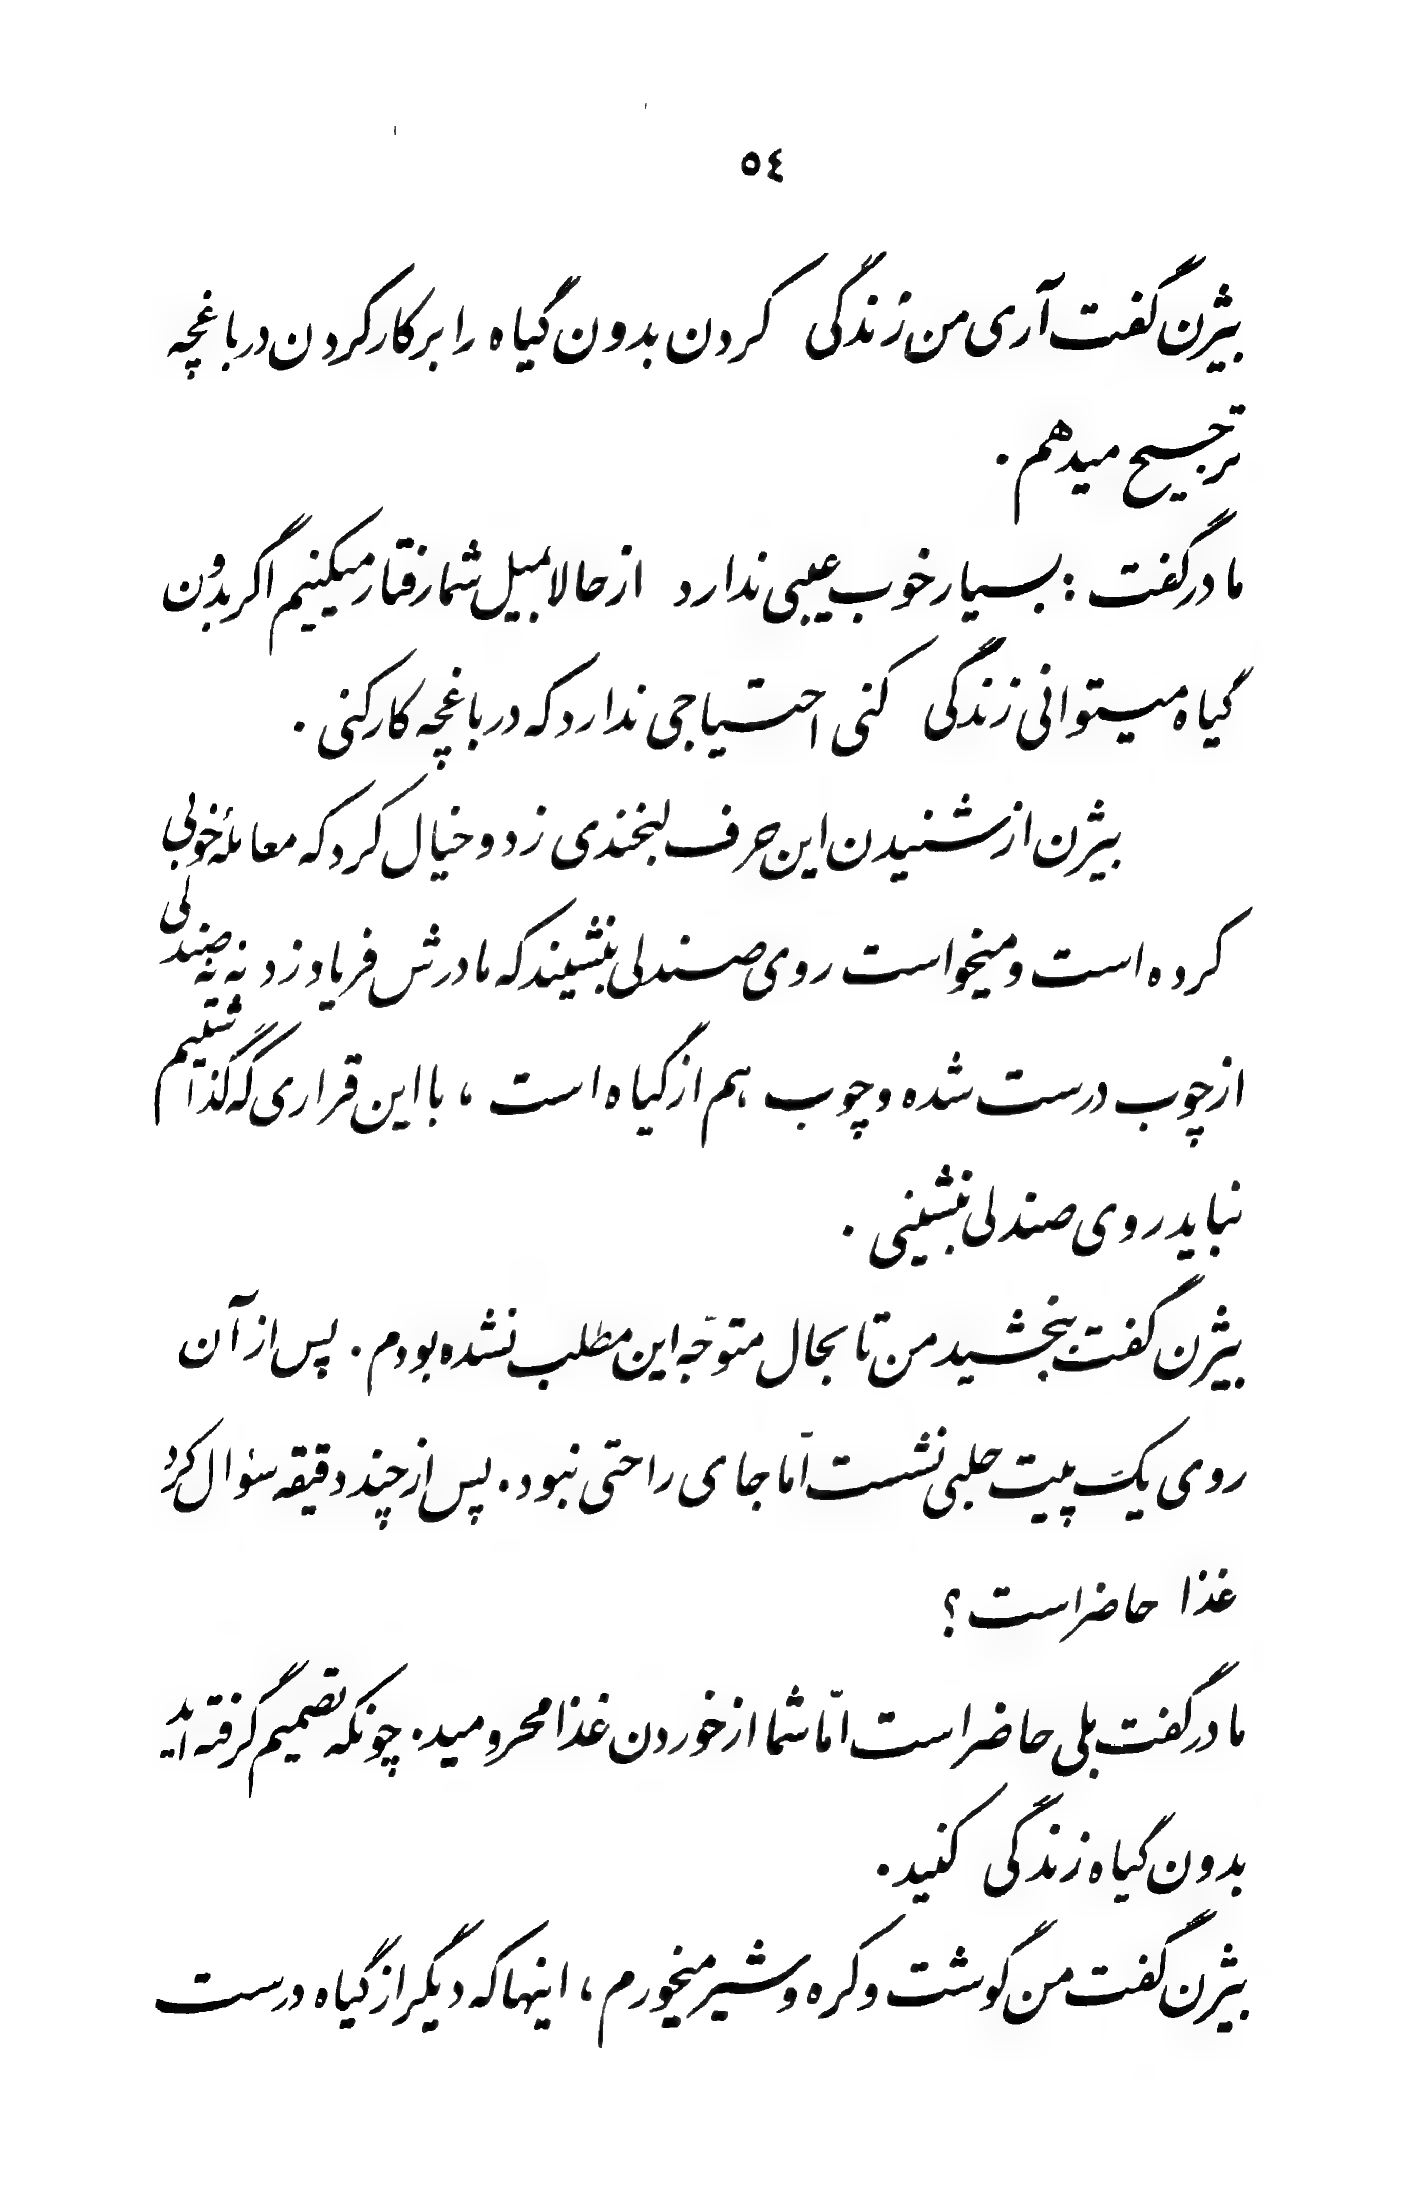 ٥٤
بیژن گفت آری من زندگی کردن بدون گیاه را بر کار کردن در باغچه
ترجیح میدهم .
مادر گفت : بسیار خوب عیبی ندارد از حالا بمیل شما رفتار میکنیم اگر بدون
گیاه میتوانی زندگی کنی احتیاجی ندارد که در باغچه کار کنی .
بیژن از شنیدن این حرف لبخندی زد و خیال کرد که معاملهٔ خوبی
کرده است و میخواست روی صندلی بنشیند که مادرش فریاد زد نه نه صندلی
از چوب درست شده و چوب هم از گیاه است ، با این قراری که گذاشتیم
نباید روی صندلی بنشینی .
بیژن گفت ببخشید من تا بحال متوجّه این مطلب نشده بودم . پس از آن
روی یک پیت حلبی نشست امّا جای راحتی نبود . پس از چند دقیقه سؤال کرد
غذا حاضر است ؟
مادر گفت بلی حاضر است امّا شما از خوردن غذا محرومید . چونکه تصمیم گرفته اید
بدون گیاه زندگی کنید .
بیژن گفت من گوشت و کره و شیر میخورم ، اینها که دیگر از گیاه درست